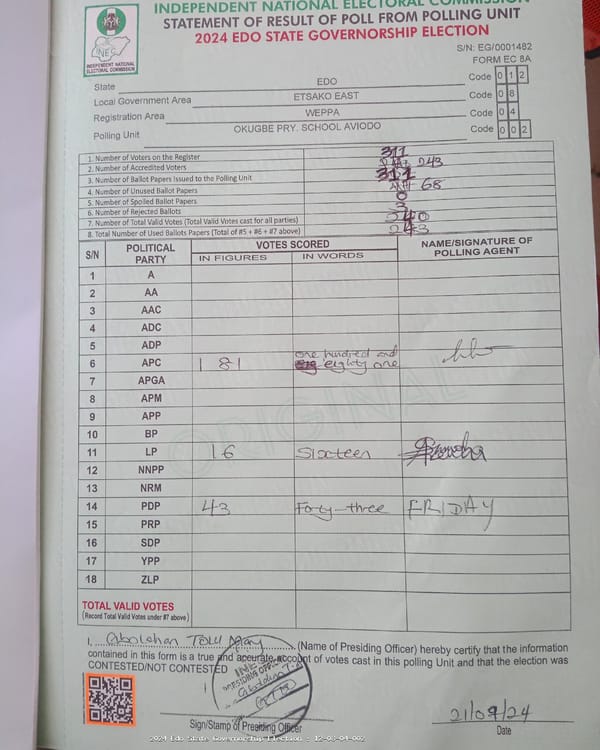 INDEPENDENT NATIONAL ELECTORAL COMMISSION
STATEMENT OF RESULT OF POLL FROM POLLING UNIT
2024 EDO STATE GOVERNORSHIP ELECTION
INEC
INDEPENDENT NATIONAL
ELECTORAL COMMISSION
S/N: EG/0001482
FORM EC 8A
State EDO Code 0 1 2
Local Government Area ETSAKO EAST Code 0 8
Registration Area WEPPA Code 0 4
Polling Unit OKUGBE PRY. SCHOOL AVIODO Code 0 0 2
1. Number of Voters on the Register 311
2. Number of Accredited Voters 243
3. Number of Ballot Papers Issued to the Polling Unit 311
4. Number of Unused Ballot Papers 68
5. Number of Spoiled Ballot Papers 0
6. Number of Rejected Ballots 3
7. Number of Total Valid Votes (Total Valid Votes cast for all parties) 240
8. Total Number of Used Ballots Papers (Total of #5 + #6 + #7 above) 243
S/N POLITICAL PARTY VOTES SCORED NAME/SIGNATURE OF POLLING AGENT
IN FIGURES IN WORDS
1 A
2 AA
3 AAC
4 ADC
5 ADP
6 APC 181 one hundred and eighty one
7 APGA
8 APM
9 APP
10 BP
11 LP 16 Sixteen
12 NNPP
13 NRM
14 PDP 43 Forty-three FRIDAY
15 PRP
16 SDP
17 YPP
18 ZLP
TOTAL VALID VOTES
(Record Total Valid Votes under #7 above)
ORIGINAL
I, (Name of Presiding Officer) hereby certify that the information
contained in this form is a true and accurate account of votes cast in this polling Unit and that the election was
CONTESTED/NOT CONTESTED
INEC
PRESIDING OFFICER
Sign/Stamp of Presiding Officer
21/09/24
Date
2024 Edo State Governorship Election - 12-08-04-002